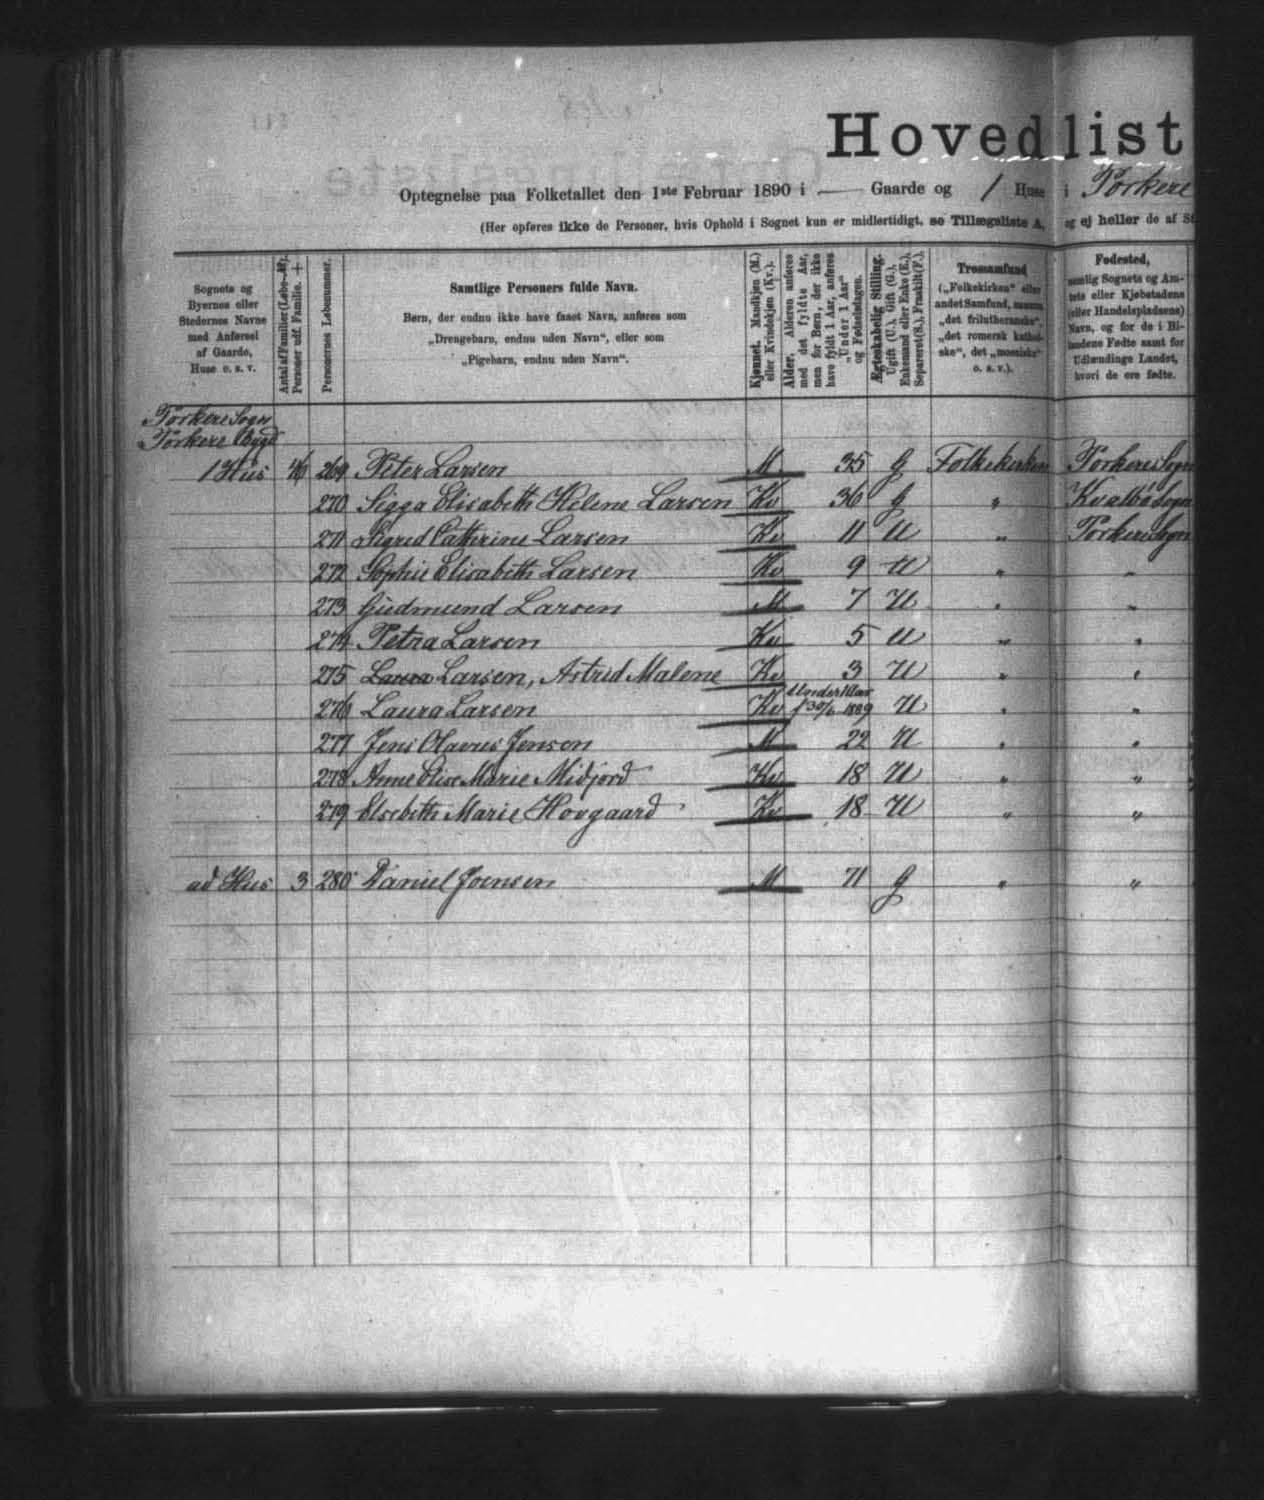 Hovedlist
Optegnelse paa Folketallet den 1ste Februar 1890 i — Gaarde og 1 Huse i Porkere
(Her opføres ikke de Personer, hvis Ophold i Sognet kun er midlertidigt, se Tillægsliste A, og ej heller de af St
Sognets og Byernes eller Stedernes Navne med Anførsel af Gaarde, Huse o. s. v.
Antal af Familier (Løbe-№). Personer udf. Familie. +
Personernes Løbenummer.
Samtlige Personers fulde Navn.
Børn, der endnu ikke have faaet Navn, anføres som
„Drengebarn, endnu uden Navn“, eller som
„Pigebarn, endnu uden Navn“.
Kjønnet. Mandkjøn (M.) eller Kvindekjøn (Kv.).
Alder. Alderen anføres med det fyldte Aar, men for Børn, der ikke have fyldt 1 Aar, anføres „Under 1 Aar“ og Fødselsdagen.
Ægteskabelig Stilling. Ugift (U.), Gift (G.), Enkemand eller Enke (E.), Separeret (S.), Fraskilt (F.).
Trossamfund („Folkekirken“ eller andet Samfund, saasom „det frilutheranske“, „det romersk katholske“, det „mosaiske“ o. s. v.).
Fødested, nemlig Sognets og Amtets eller Kjøbstadens (eller Handelspladsens) Navn, og for de i Bilandene Fødte samt for Udlændinge Landet, hvori de ere fødte.
Porkere Sogn
Porkere Bygd
1 Hus 46 269 Peter Larsen M 35 G Folkekirken Porkere Sogn
270 Sigga Elisabeth Helene Larsen Kv 36 G „ Kvalbø Sogn
271 Sigrid Cathrine Larsen Kv 11 U „ Porkere Sogn
272 Sophie Elisabeth Larsen Kv 9 U „ „
273 Gudmund Larsen M 7 U „ „
274 Petra Larsen Kv 5 U „ „
275 Laura Larsen, Astrid Malene Kv 3 U „ „
276 Laura Larsen Kv Under 1 Aar f 30/6 1889 U „ „
277 Jens Olavus Jensen M 22 U „ „
278 Anne Elise Marie Midjord Kv 18 U „ „
279 Elsebeth Marie Hovgaard Kv 18 U „ „
ad Hus 3 280 Daniel Joensen M 71 G „ „